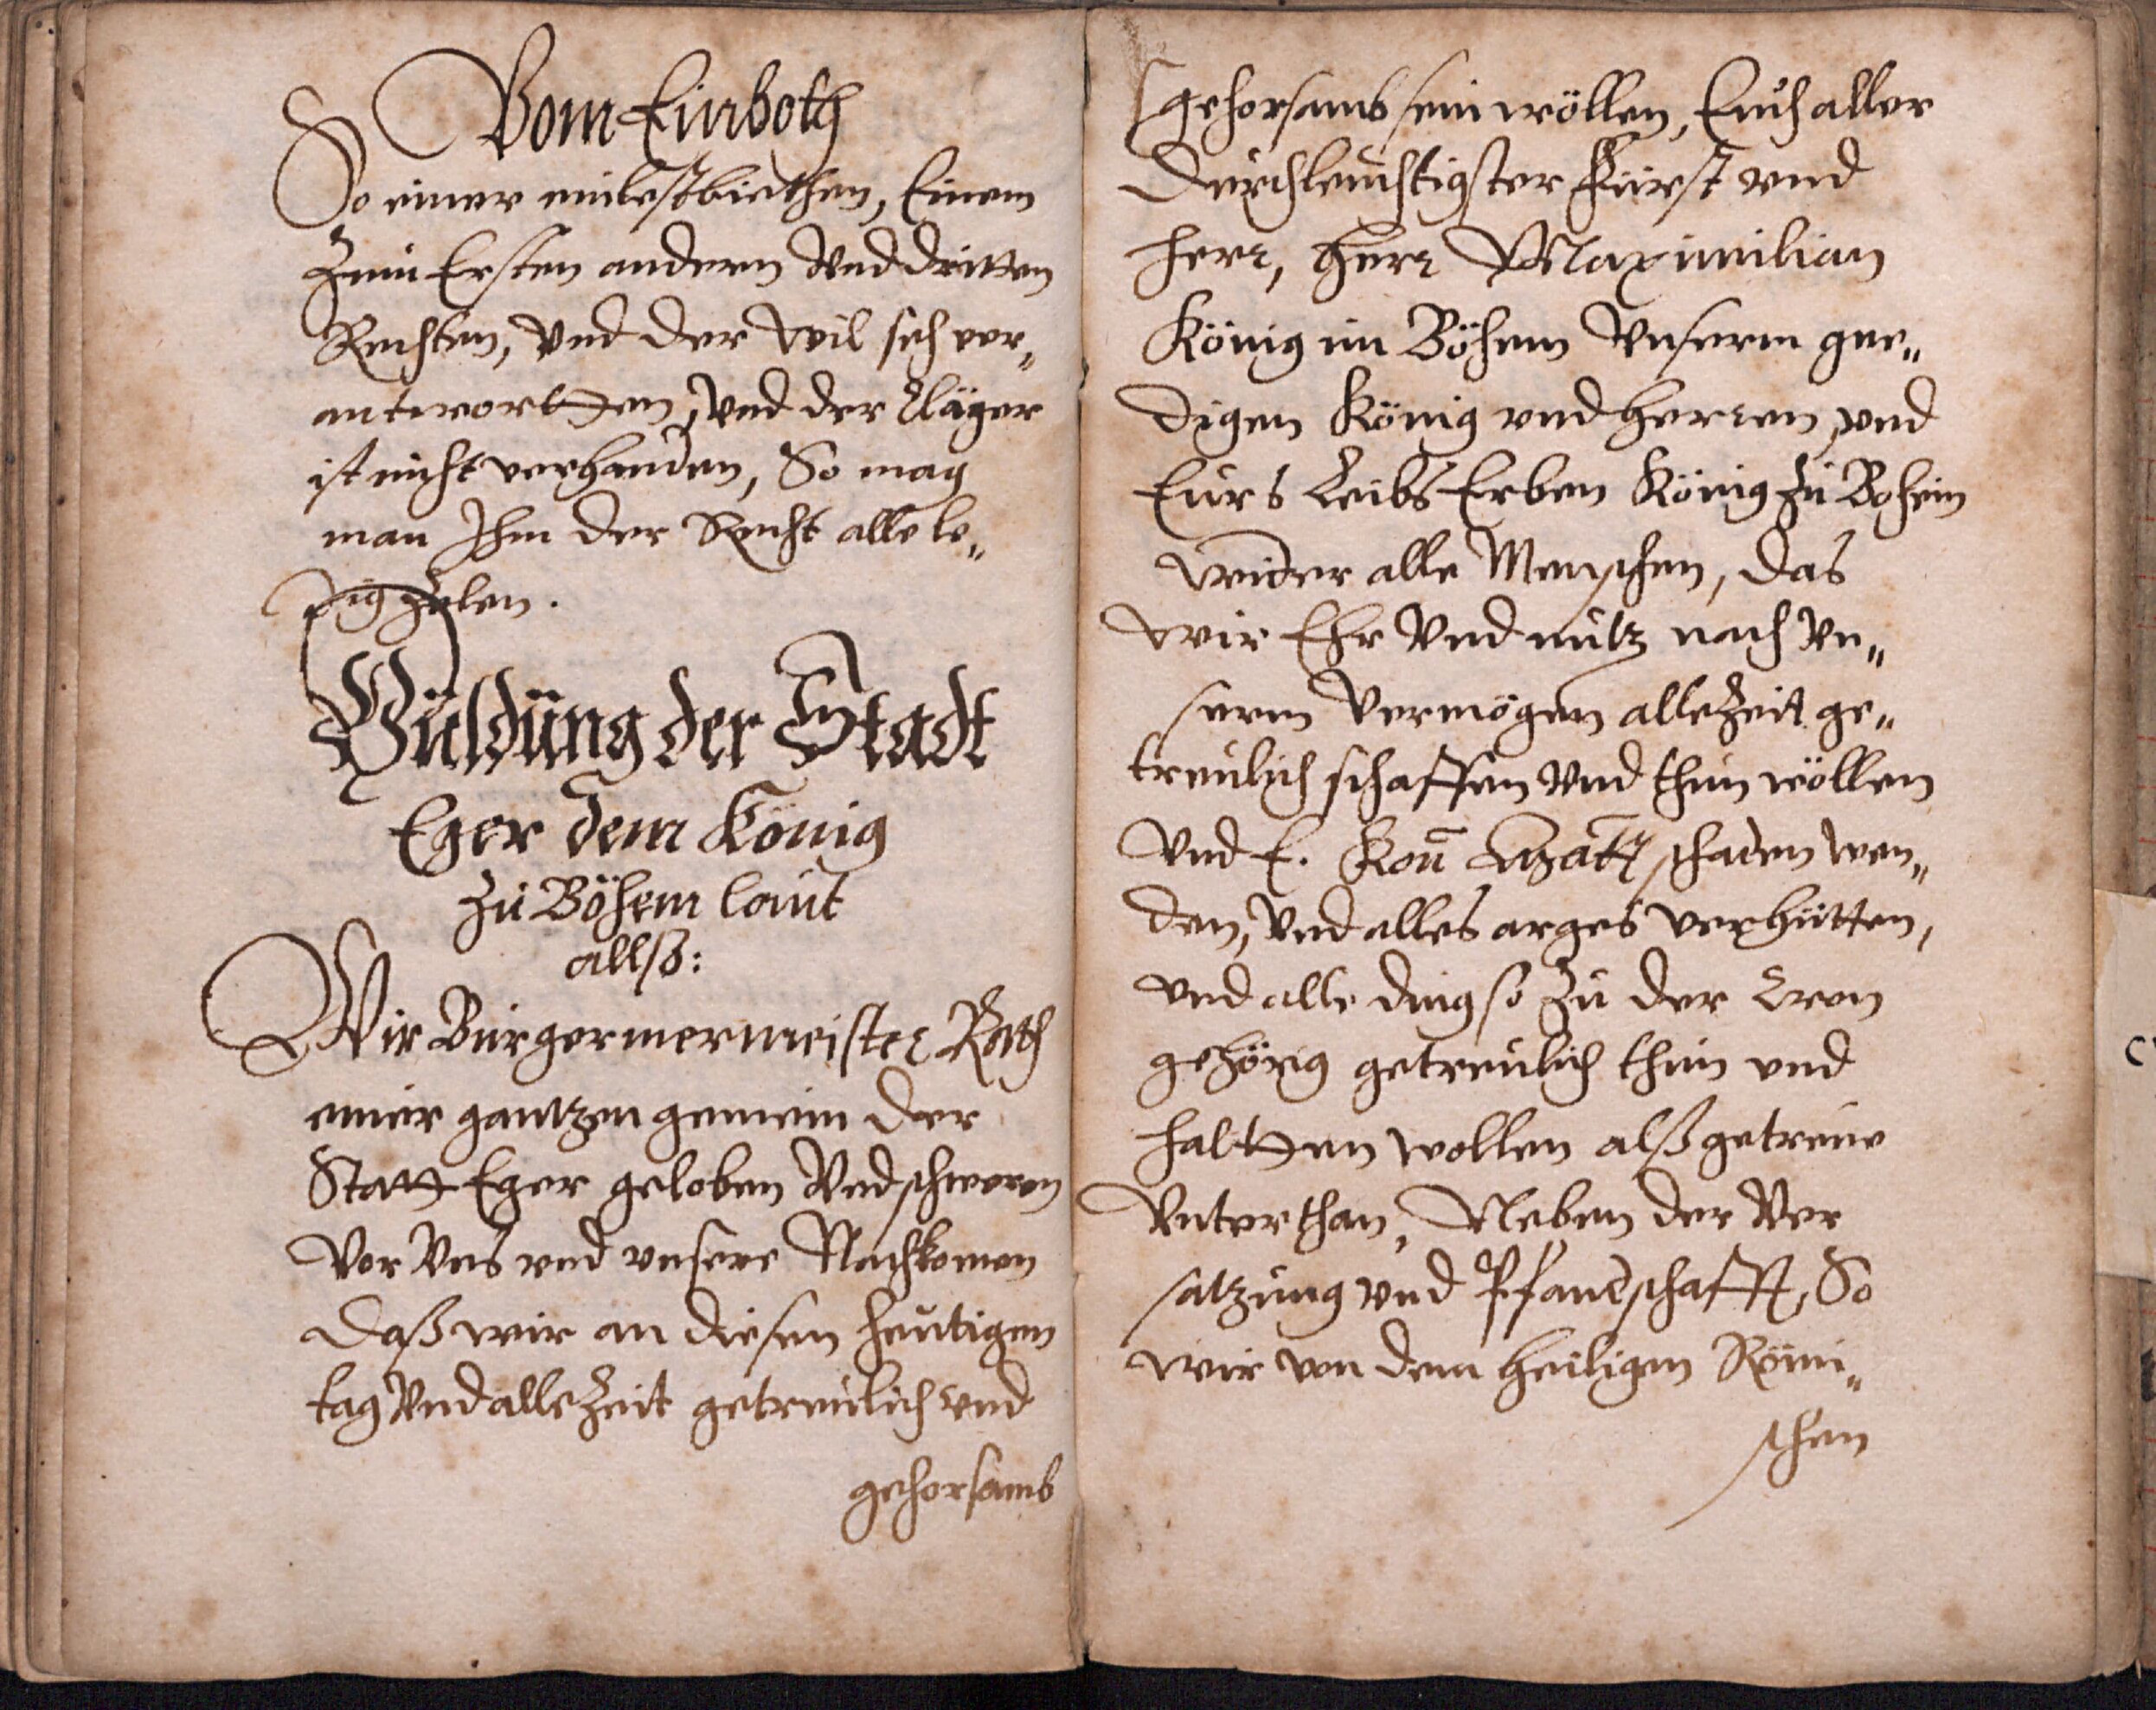 Vom Einboth
So einer einlest biethen, Einem
Zum Ersten andern Vnd dritten
Rechten, Vnd der wil sich ver„
antwortten, Vnd der Cläger
ist nicht verhanden, So mag
man Ihm der Recht alle le„
dig zelen.
Huldüng der Stadt
Eger dem König
zu Böhem laut
allß:
Wir Bürgermermeister Rath
einer gantzen gemein der
Statt Eger geloben Vnd schweren
Vor Vns vnd vnsere Nachkomen
Daß wir an diesen heutigen
tag Vnd alle Zeit getreulich vnd
gehorsamb
gehorsamb sein wöllen, Euch aller
Durchleuchtigster Fürst vnd
Herr, Herr Maximilian
König im Böhem Vnserm gne„
digen König vnd Herren, vnd
Eurs Leibs Erben König zu Bohem
wider alle Menschen, das
wir Ehr Vnd nutz nach Vn„
serm Vermögen alle Zeit ge„
treulich schaffen Vnd thun wöllen
Vnd E. Kön schaden wen„
den, Vnd alles arges Verhütten,
vnd alle ding so zu der Cron
gehörig getreulich thun vnd
haltten wollen alß getreue
Vnterthan, Neben der Ver
satzung vnd Pfandschafft, So
wir von dem heiligen Römi„
schen